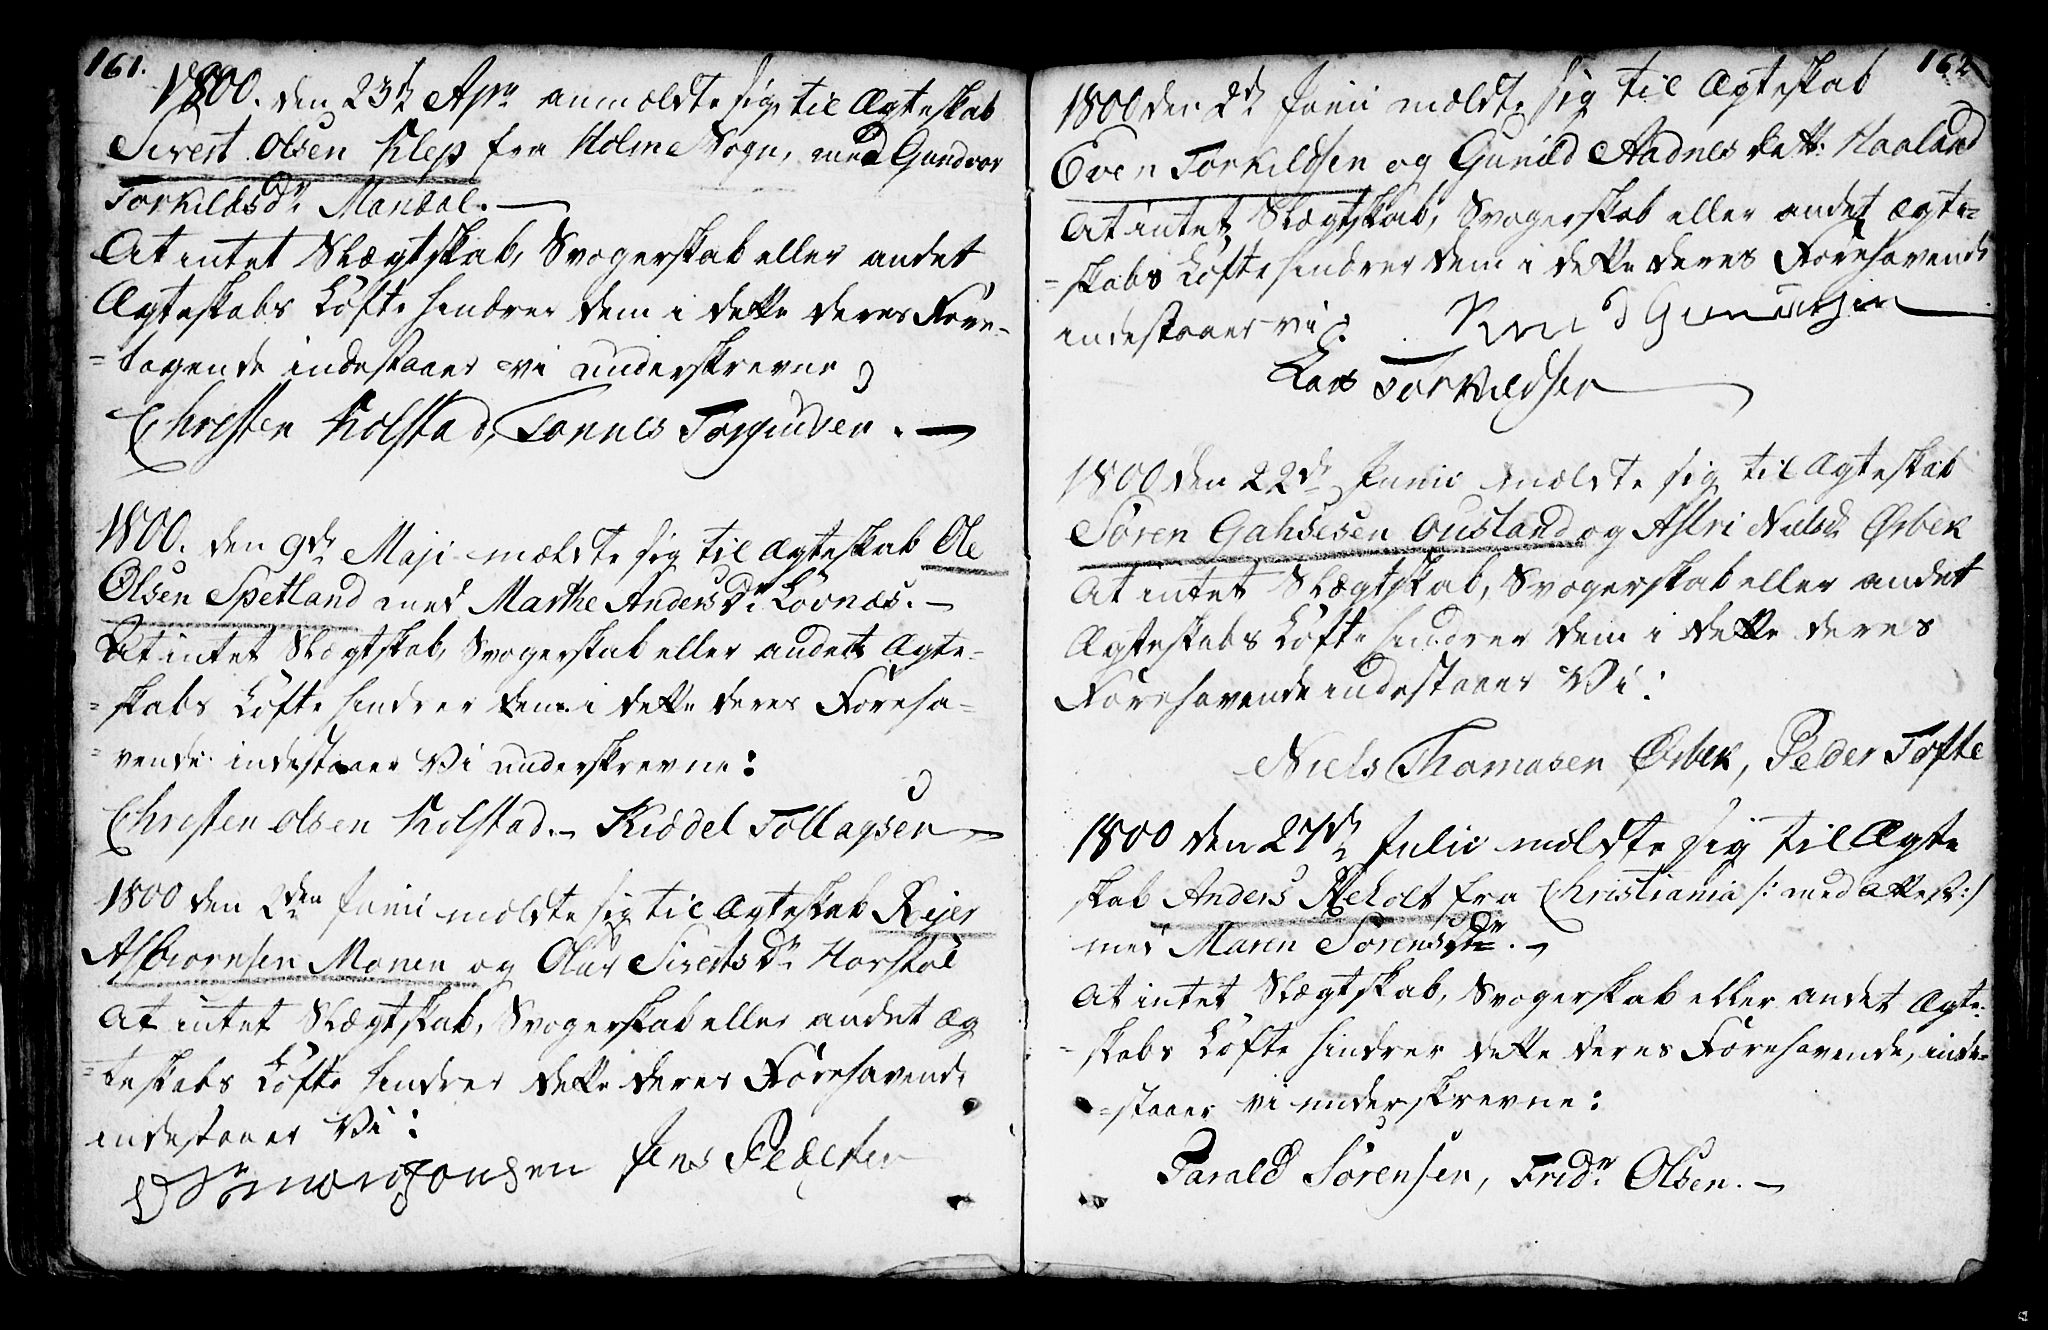 161.
1800. den 23de Apr anmeldte sig til Ægteskab
Sivert Olsen Klep fra Holme Sogn, med Gundvor
Torkildsdr Mandal. —
At intet Slægtskab, Svogerskab eller andet
Ægteskabs Løfte hindrer dem i dette deres Fore-
=tagende indestaaer vi underskrevne
Christen Kolstad, Tønnes Torjusen. —
1800. den 9de Maji meldte sig til Ægteskab Ole
Olsen Spetland med Marthe Andersdr Løvnæs. —
At intet Slægtskab, Svogerskab eller andet Ægte-
=skabs Løfte hindrer dem i dette deres Foreha-
=vende indestaaer Vi underskrevne:
Christen Olsen Kolstad. — Kiddel Tollagsen —
1800 den 2den Junii meldte sig til Ægteskab Reier
Asbiørnsen Monen og Olur Sivertsdr Horstøl
At intet Slægtskab, Svogerskab eller andet Æg
=teskabs Løfte hindrer dette deres Forehavende
indestaaer Vi:
Jens Pedersen
162
1800 den 2de Junii meldte sig til Ægteskab
Even Torkildsen og Gunild Aadnes Datt: Haaland
At intet Slægtskab, Svogerskab eller andet Ægte=
=skabs Løfte hindrer dem i dette deres Forehavende
indestaaer vi: Knud Gunuldsen
Lars Torkildsen
1800 den 22de Junii meldte sig til Ægteskab
Søren Gahbesen Ousland og Astri Nielsdr Ørbek
At intet Slægtskab, Svogerskab eller andet
Ægteskabs Løfte hindrer dem i dette deres
Forehavende indestaaer Vi:
Niels Thomasen Ørbek, Peder Tofte
1800 den 27de Julii meldte sig til Ægte
skab Anders Reholt fra Christiania /: med Attest :/
med Maren Sørensdr. —
At intet Slægtskab, Svogerskab eller andet Ægte-
=skabs Løfte hindrer dette deres Forehavende, inde-
=staaer vi underskrevne:
Tarald Sørensen, Fridr Olsen. —